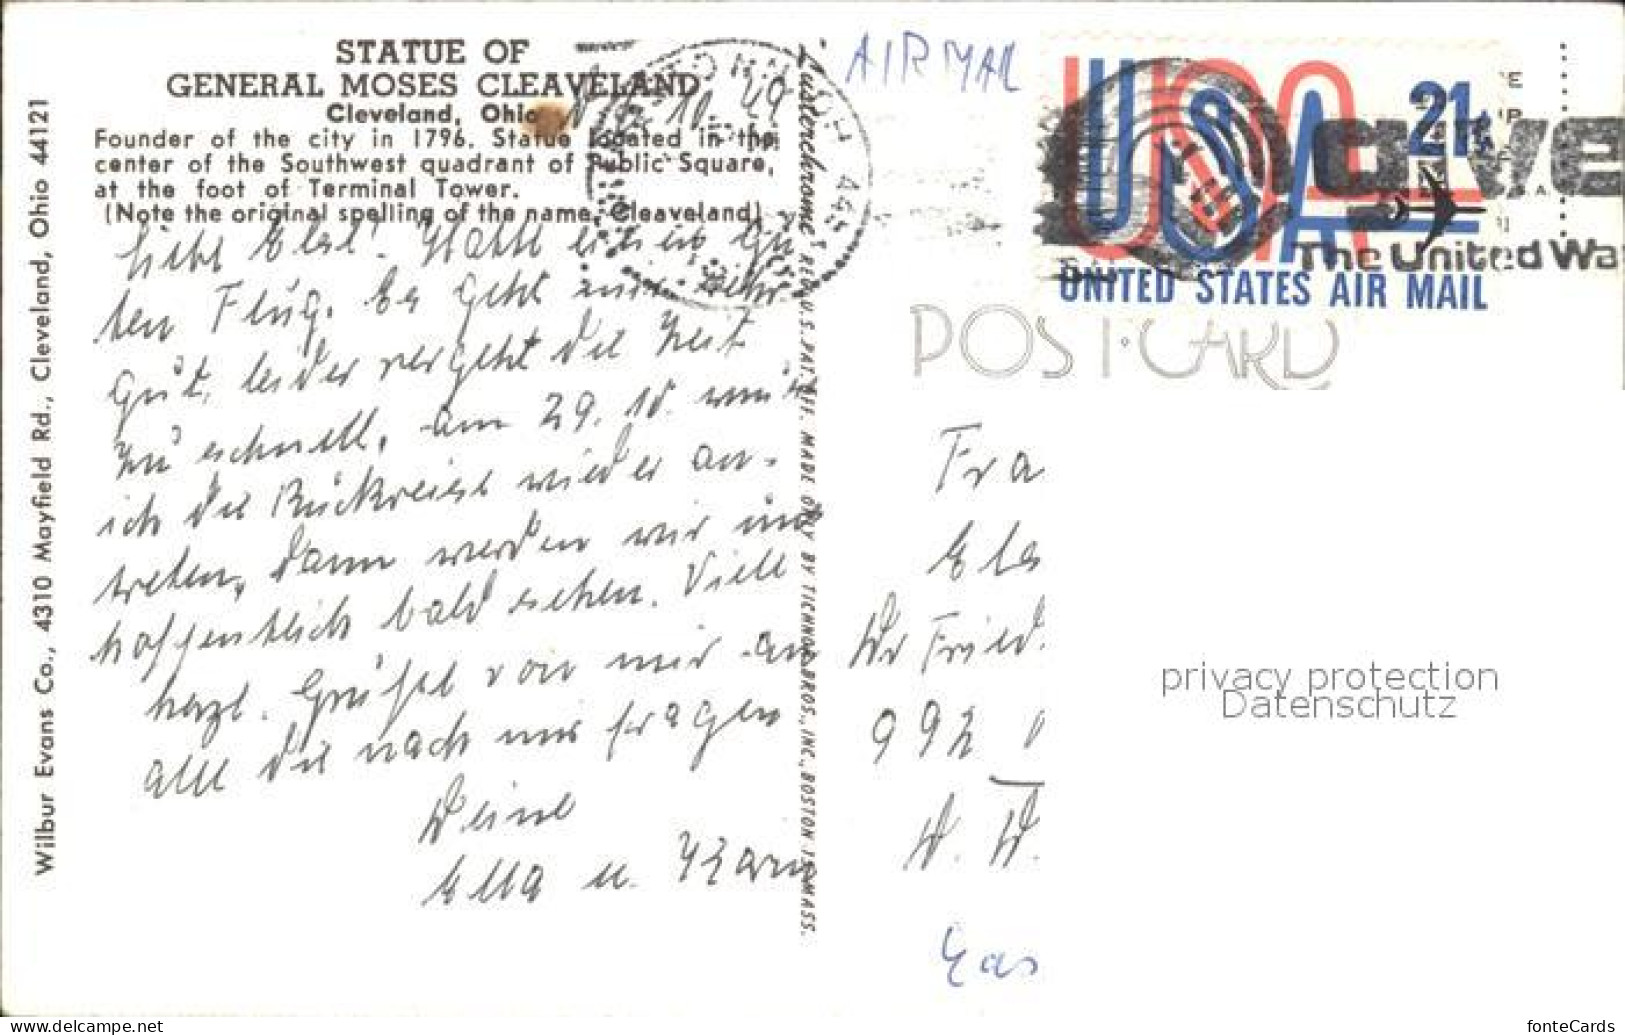 STATUE OF
GENERAL MOSES CLEAVELAND
Cleveland, Ohio
Founder of the city in 1796. Statue located in the
center of the Southwest quadrant of Public Square,
at the foot of Terminal Tower.
(Note the original spelling of the name, Cleaveland)
Liebe Else! Hatte einen gu
ten Flug. Es geht mir sehr
gut, leider vergeht die Zeit
zu schnell, am 29. 10. muß
ich die Rückreise wieder an-
treten, dann werden wir uns
hoffentlich bald sehen. Viele
herzl. Grüße von mir an
alle die nach mir fragen
Deine
Ella u.
Wilbur Evans Co., 4310 Mayfield Rd., Cleveland, Ohio 44121
Lusterchrome ® REG. U.S. PAT. OFF. MADE ONLY BY TICHNOR BROS., INC., BOSTON 15, MASS.
AIR MAIL
USA
21¢
UNITED STATES AIR MAIL
The United Wa
POST CARD
Fra
Els
Fried.
992
W. D.
privacy protection
Datenschutz
www.ansichtskarten-center.de
fonteCards